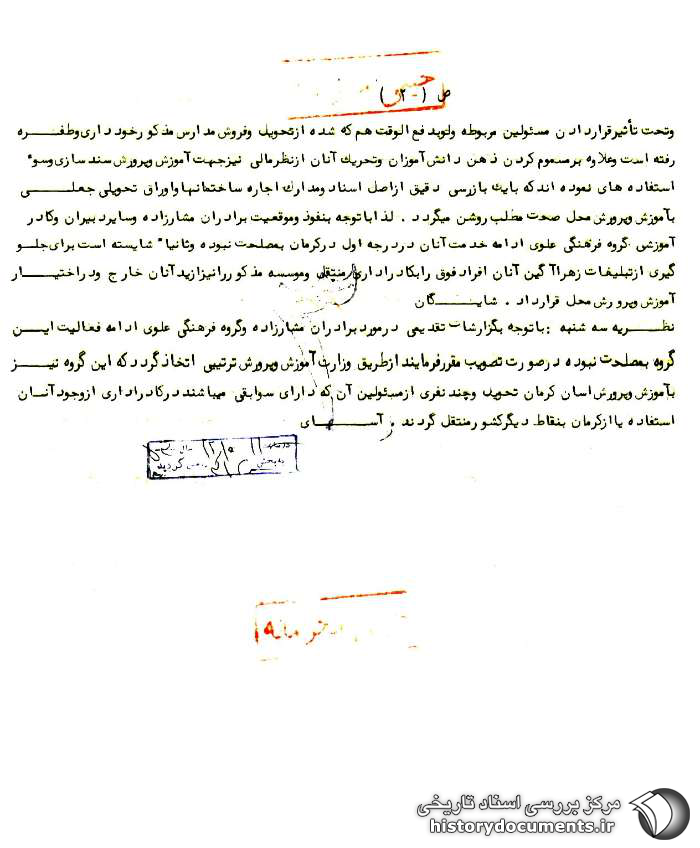 ص (۲-)
وتحت تأثیرقراردادن مسئولین مربوطه ولوبدفع الوقت هم که شده ازتحویل وفروش مدارس مذکورخودداری وطفـــره
رفته است وعلاوه برمسموم کردن ذهن دانش‌آموزان وتحریك آنان ازنظرمالی نیزجهت آموزش وپرورش سندسازی وسو"
استفاده های نموده اندکه بایك بازرسی دقیق ازاصل اسناد ومدارك اجاره ساختمانهاواوراق تحویلی جعلـــی
بآموزش وپرورش محل صحت مطلب روشن میگردد . لذاباتوجه بنفوذ وموقعیت برادران مشارزاده وسایردبیران وکادر
آموزشی گروه فرهنگی علوی ادامه خدمت آنان دردرجه اول درکرمان بمصلحت نبوده وثانیا" شایسته است برای جلـو
گیری ازتبلیغات زهراآگین آنان افرادفوق رابکادراداری منتقل وموسسه مذکوررانیزازیدآنان خارج ودراختیـــار
آموزش وپرورش محل قرارداد . شایـــگان
نظـریه سه شنبه :باتوجه بگزارشات تقدیمی درموردبرادران مشارزاده وگروه فرهنگی علوی ادامه فعالیت ایـن
گروه بمصلحت نبوده درصورت تصویب مقررفرمایند ازطریق وزارت آموزش وپرورش ترتیبی اتخاذگرددکه این گروه نیـز
بآموزش وپرورش استان کرمان تحویل وچندنفری ازمسئولین آن که دارای سوابقی میباشند درکادراداری ازوجودآنـان
استفاده یاازکرمان بنقاط دیگرکشورمنتقل گردند . آســـیای
مرکز بررسی اسناد تاریخی
historydocuments.ir